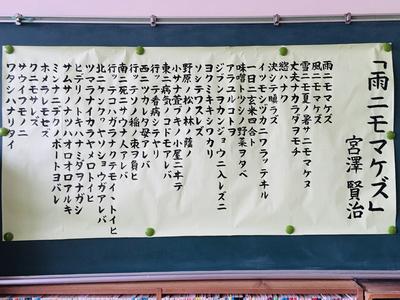 「雨ニモマケズ」
宮澤 賢治
雨ニモマケズ
風ニモマケズ
雪ニモ夏ノ暑サニモマケヌ
丈夫ナカラダヲモチ
慾ハナク
決シテ瞋ラズ
イツモシヅカニワラッテヰル
一日ニ玄米四合ト
味噌ト少シノ野菜ヲタベ
アラユルコトヲ
ジブンヲカンジョウニ入レズニ
ヨクミキキシワカリ
ソシテワスレズ
野原ノ松ノ林ノ蔭ノ
小サナ萱ブキノ小屋ニヰテ
東ニ病気ノコドモアレバ
行ッテ看病シテヤリ
西ニツカレタ母アレバ
行ッテソノ稲ノ束ヲ負ヒ
南ニ死ニサウナ人アレバ
行ッテコハガラナクテモイヽトイヒ
北ニケンクヮヤソショウガアレバ
ツマラナイカラヤメロトイヒ
ヒデリノトキハナミダヲナガシ
サムサノナツハオロオロアルキ
ミンナニデクノボートヨバレ
ホメラレモセズ
クニモサレズ
サウイフモノニ
ワタシハナリタイ